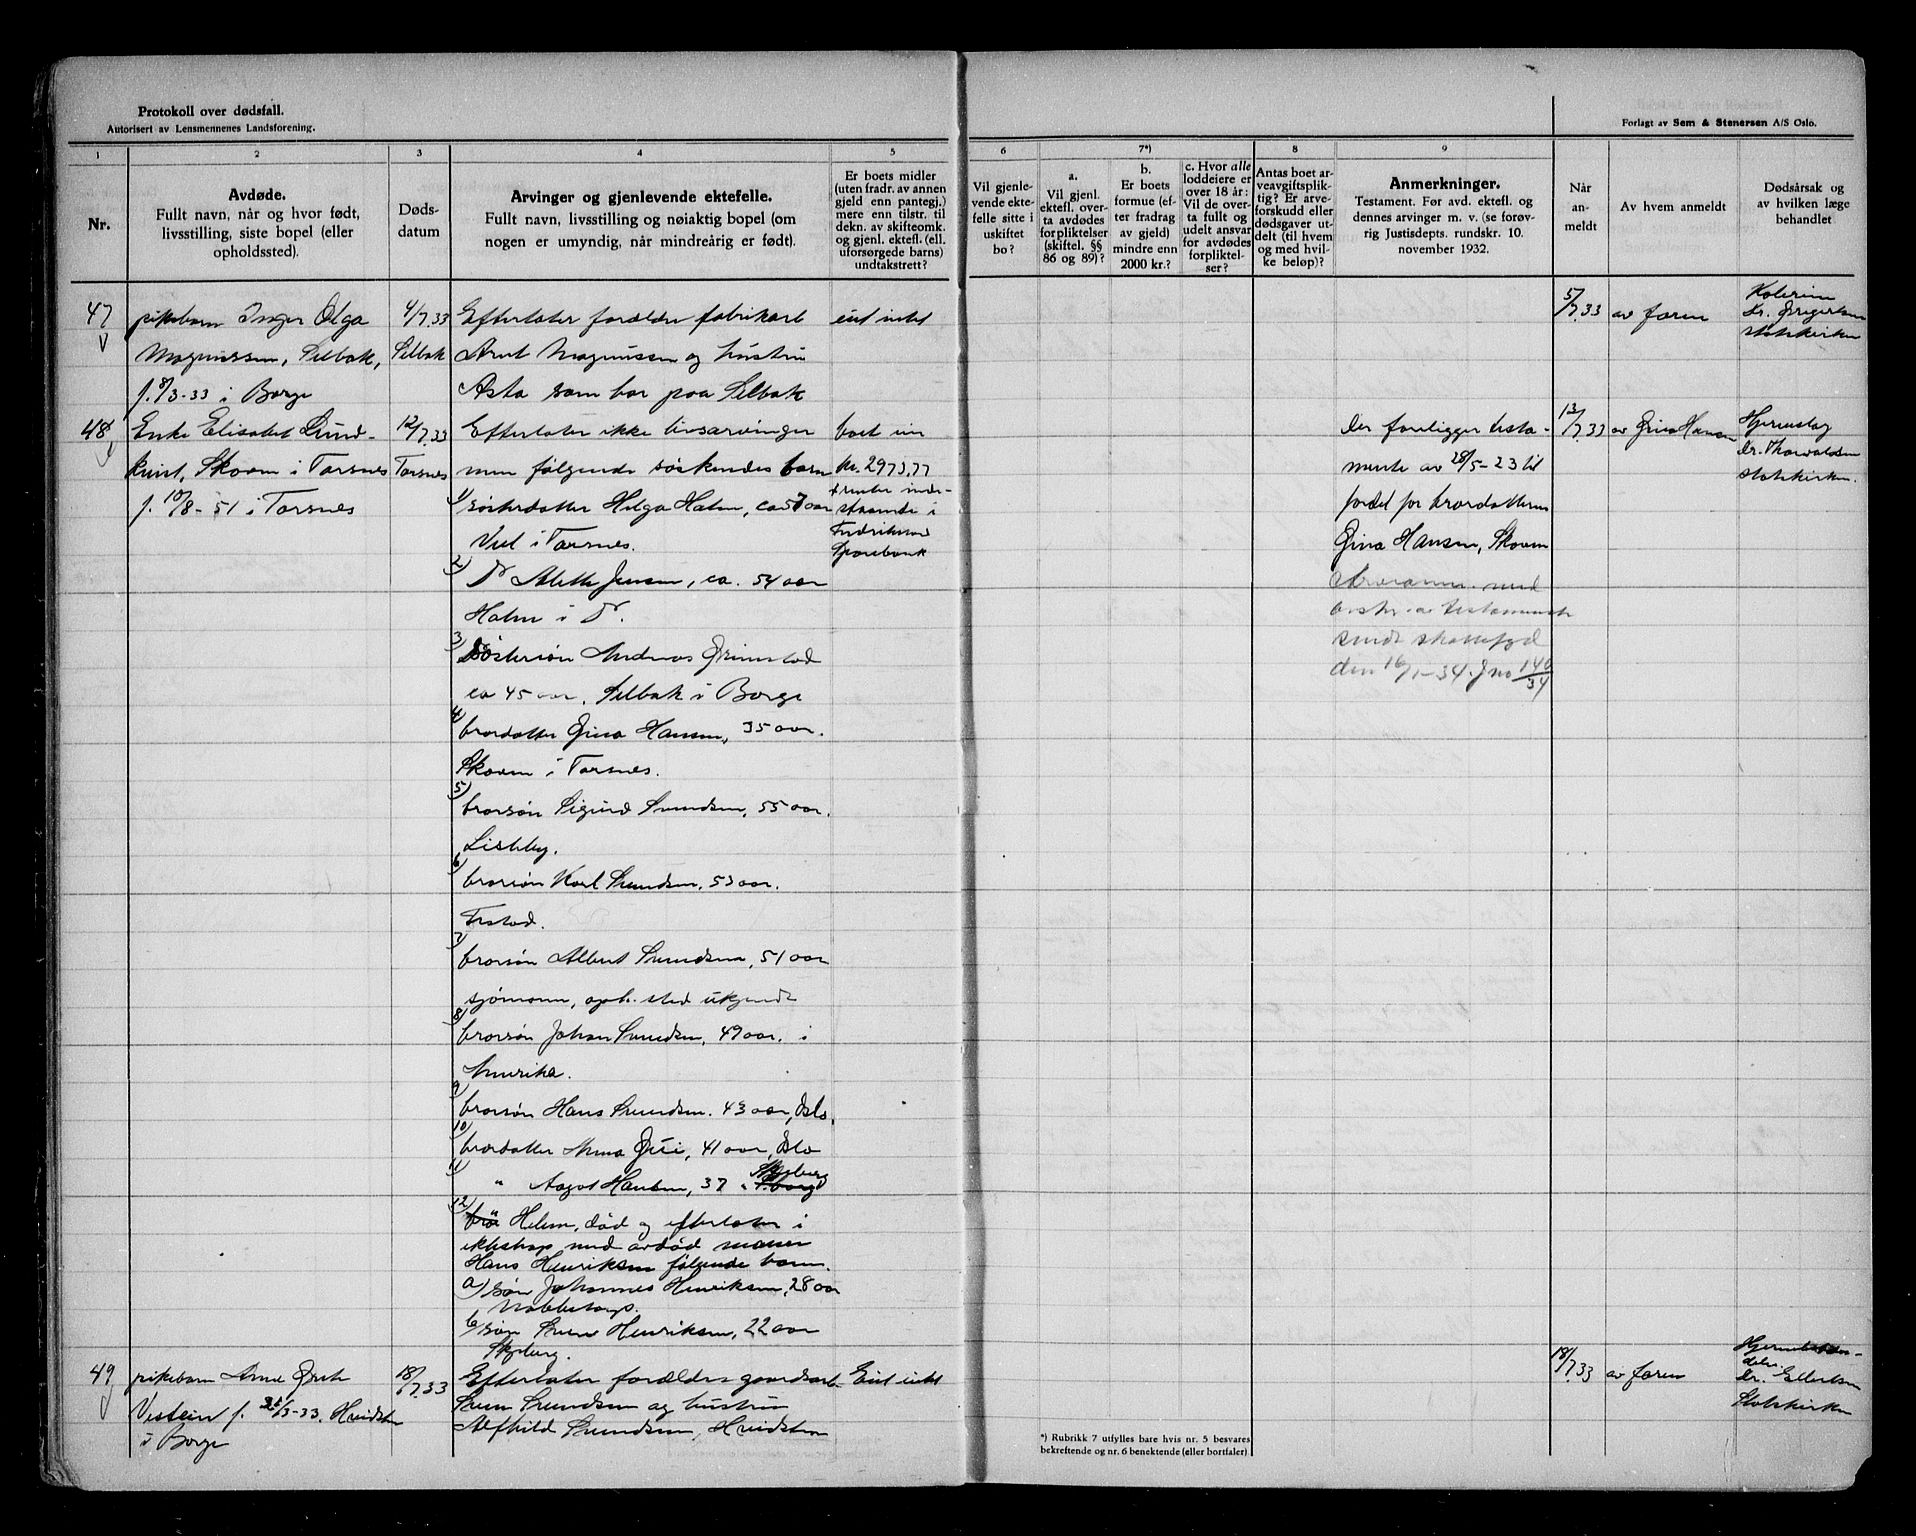 Protokoll over dødsfall.
Autorisert av Lensmennenes Landsforening.
Forlagt av Sem & Stenersen A/S Oslo.
1
2
3
4
5
6
7*)
8
9
Nr.
Avdøde.
Fullt navn, når og hvor født,
livsstilling, siste bopel (eller
opholdssted).
Døds-
datum
Arvinger og gjenlevende ektefelle.
Fullt navn, livsstilling og nøiaktig bopel (om
nogen er umyndig, når mindreårig er født).
Er boets midler
(uten fradr. av annen
gjeld enn pantegj.)
mere enn tilstr. til
dekn. av skifteomk.
og gjenl. ektefl. (ell.
uforsørgede barns)
undtakstrett?
Vil gjenle-
vende ekte-
felle sitte i
uskiftet
bo?
a.
Vil gjenl.
ektefl. over-
ta avdødes
forpliktelser
(skiftel. §§
86 og 89)?
b.
Er boets
formue (ef-
ter fradrag
av gjeld)
mindre enn
2000 kr.?
c. Hvor alle
loddeiere er
over 18 år:
Vil de overta
fullt og
udelt ansvar
for avdødes
forpliktel-
ser?
Antas boet ar-
veavgiftsplik-
tig? Er arve-
forskudd eller
dødsgaver ut-
delt (til hvem
og med hvil-
ke beløp)?
Anmerkninger.
Testament. Før avd. ektefl. og
dennes arvinger m. v. (se forøv-
rig Justisdepts. rundskr. 10.
november 1932.
Når
an-
meldt
Av hvem anmeldt
Dødsårsak og
av hvilken læge
behandlet
47
pikebarn Inger Olga
Magnussen, Selbak,
f. 8/3-33 i Borge
4/7.33
Selbak
Efterlater forældre fabrikarb
Arnt Magnussen og hustru
Asta som bor paa Selbak
eiet intet
5/7.33
av faren
Kolerine
Statskirken
48
Enke Elisabet Lund-
kvist, Skoven i Torsnes
f. 10/8-51 i Torsnes
12/7.33
Torsnes
Efterlater ikke livsarvinger
men følgende søskendes barn
1) søsterdatter Helga Holm, ca 57 aar
i Torsnes.
2) Do Alette Jensen, ca. 54 aar
Holm i Do.
3) Søstersøn Andreas Grimstad
ca 45 aar, Selbak i Borge
4) brordatter Gina Hansen, 35 aar.
Skoven i Torsnes.
5) brorsøn Sigurd Svendsen, 55 aar.
Lisleby.
6) brorsøn Karl Svendsen, 53 aar.
7) brorsøn Albert Svendsen, 51 aar
sjømann, oph. sted ukjendt
8) brorsøn Johan Svendsen, 49 aar. i
Amerika.
9) brorsøn Hans Svendsen. 43 aar, Oslo.
10) brordatter Anna 41 aar, Oslo
11) " Aagot Hansen, 37 " Skjeberg
12) " Helene, død og efterlater i
ekteskap med avdød
Hans Henriksen følgende barn.
a) søn Johannes Henriksen, 28 aar
Nabbetorp.
b) søn Henriksen, 22 aar
Skjeberg.
boet eier
kr. 2973,77
inde-
staaende i
Fredrikstad
Sparebank
Der foreligger testa-
mente av 28/5-23 til
fordel for brordatteren
Gina Hansen, Skoven
med
av testamentet
sendt skattefogd
den 16/1-34. Jno 140/34
13/7.33
av Gina Hansen
Hjerneslag
Dr. Thorvaldsen
statskirken.
49
pikebarn
f. /3-33.
i Borge
18/7.33
Efterlater forældre gaardsarb.
Svendsen og hustru
Alfhild Svendsen,
Eiet intet
18/7.33
av faren
Dr. Ellertsen
Statskirken
*) Rubrikk 7 utfylles bare hvis nr. 5 besvares
bekreftende og nr. 6 benektende (eller bortfaler)